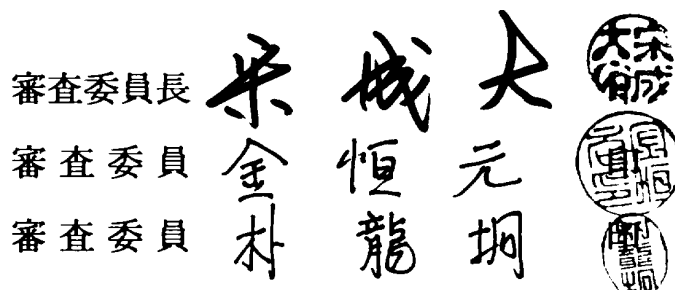 審査委員長 宋城大
審査委員 金恒元
審査委員 朴龍垌